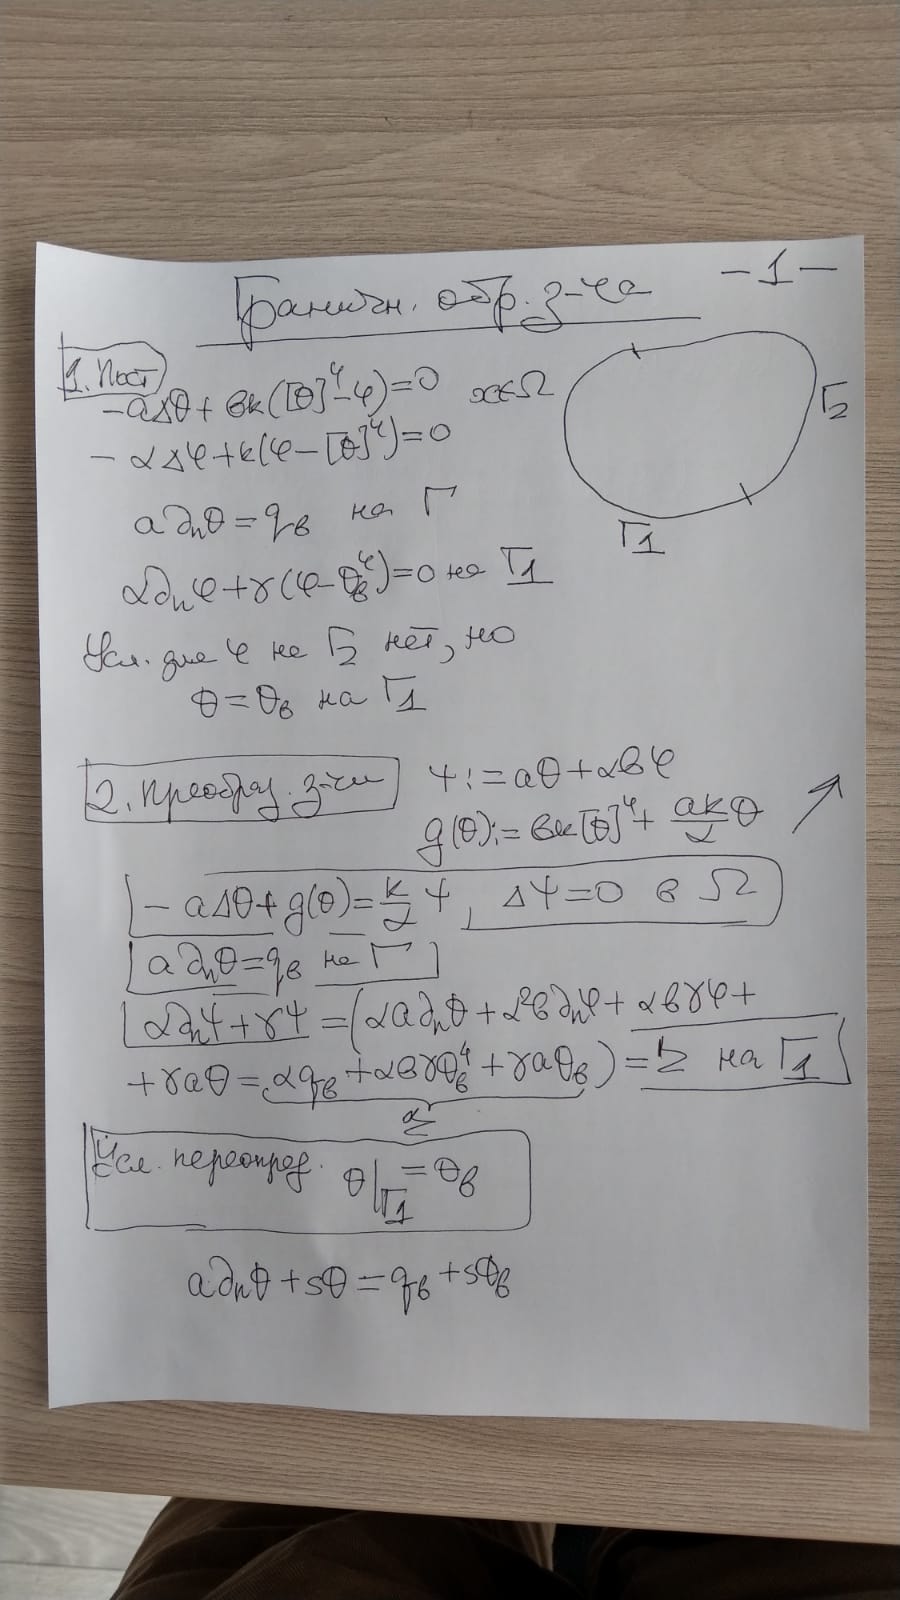 -1-
Граничн. обр. з-ча
1. Пост
-aΔθ + bk([θ]⁴-φ)=0 x∈Ω
-αΔφ+k(φ-[θ]⁴)=0
Γ₂
a∂ₙθ = q_b на Γ
Γ₁
α∂ₙφ+γ(φ-θ_b⁴)=0 на Γ₁
Усл. для φ на Γ₂ нет, но
θ=θ_b на Γ₁
2. Преобраз. з-чи ψ:=aθ+αbφ
g(θ):= bk[θ]⁴+ (ak/α)θ
-aΔθ+g(θ)=(k/α)ψ, Δψ=0 в Ω
a∂ₙθ=q_b на Γ
α∂ₙψ+γψ=(αa∂ₙθ+α²b∂ₙφ+αbγφ+
+γaθ=αq_b+αbγθ_b⁴+γaθ_b)=r на Γ₁
Усл. переопред. θ|_Γ₁=θ_b
a∂ₙθ+sθ=q_b+sθ_b